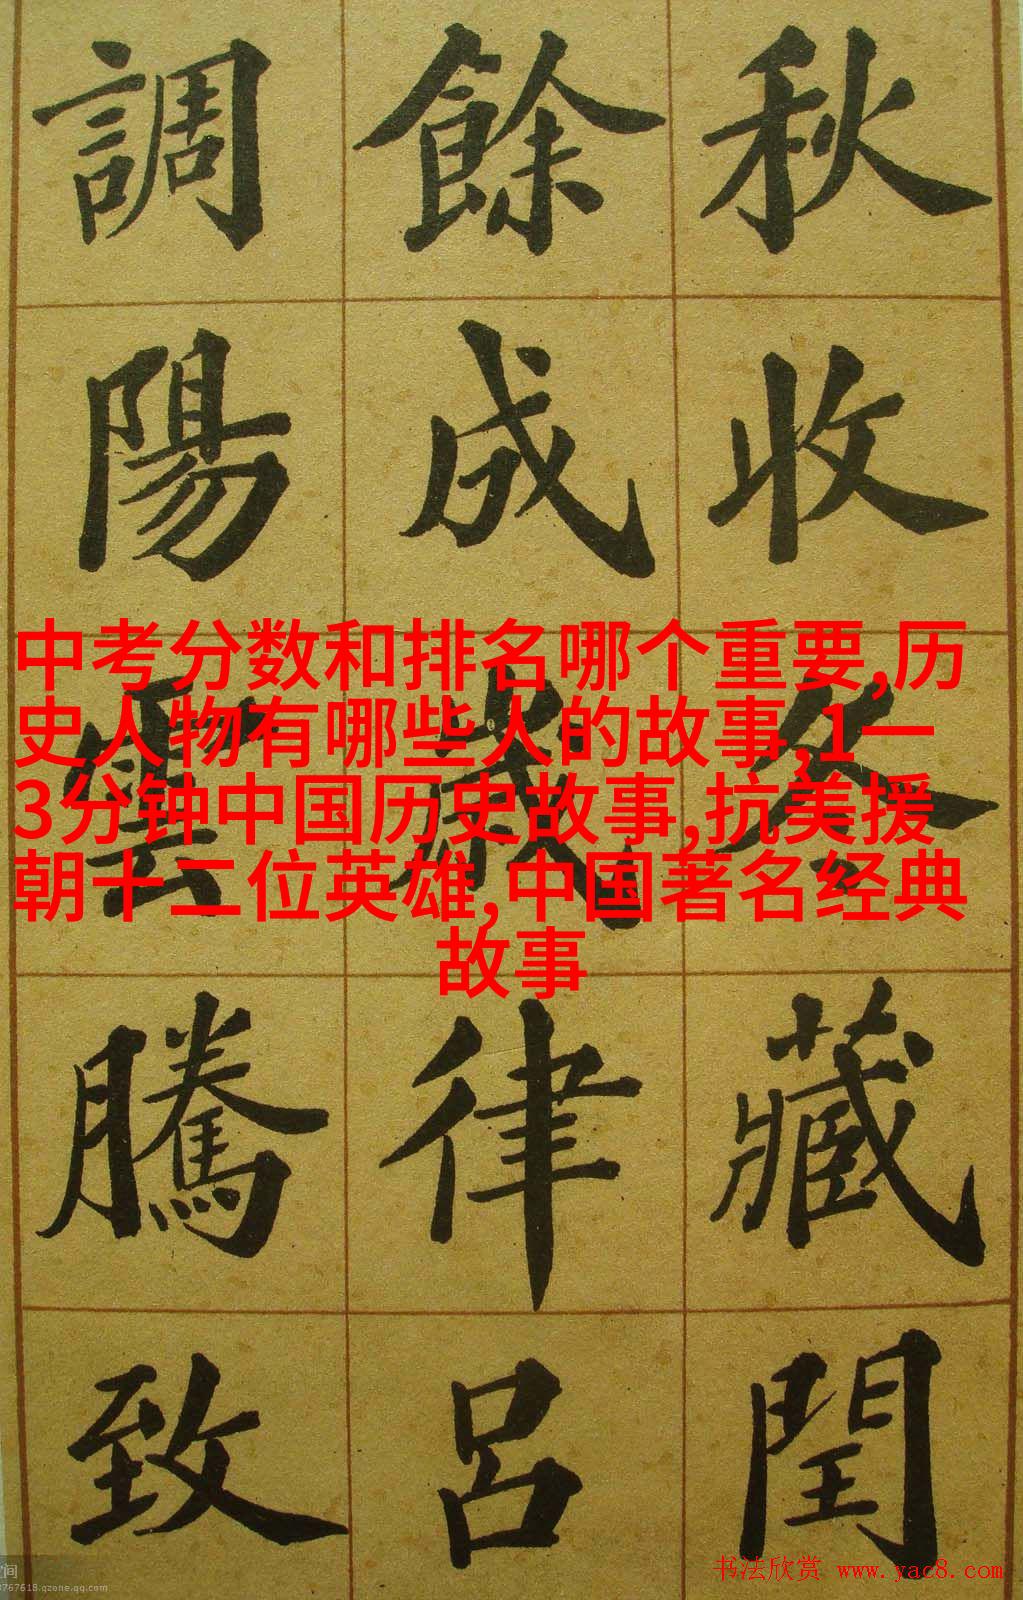 秋收冬藏閏
餘成歲律呂
調陽雲騰致
中考分数和排名哪个重要,历
史人物有哪些人的故事,1一
3分钟中国历史故事,抗美援
朝十二位英雄,中国著名经典
故事
书法欣赏 www.yac8.com
空间
3767618.qzone.qq.com